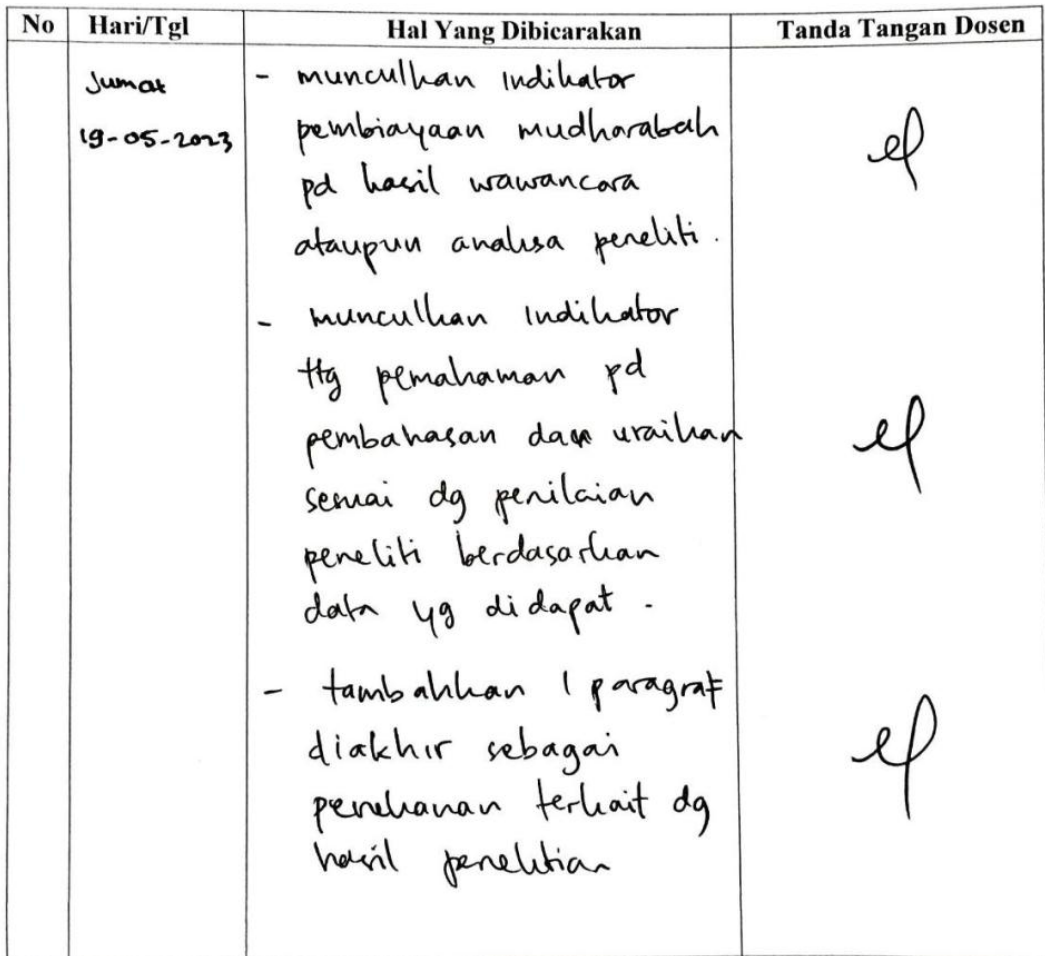 No Hari/Tgl Hal Yang Dibicarakan Tanda Tangan Dosen
Jumat - munculkan indikator
19-05-2023 pembiayaan mudharabah
pd hasil wawancara
ataupun analisa peneliti.
- munculkan indikator
ttg pemahaman pd
pembahasan dan uraikan
sesuai dg penilaian
peneliti berdasarkan
data yg didapat.
- tambahkan 1 paragraf
diakhir sebagai
penekanan terkait dg
hasil penelitian